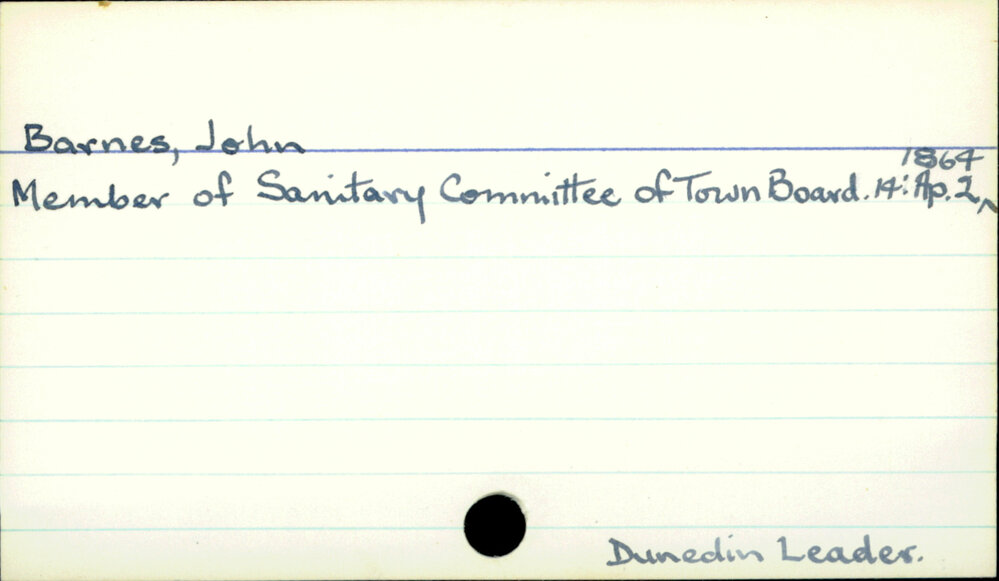 Barnes, John
Member of Sanitary Committee of Town Board. 14: Ap. 2, 1864
Dunedin Leader.